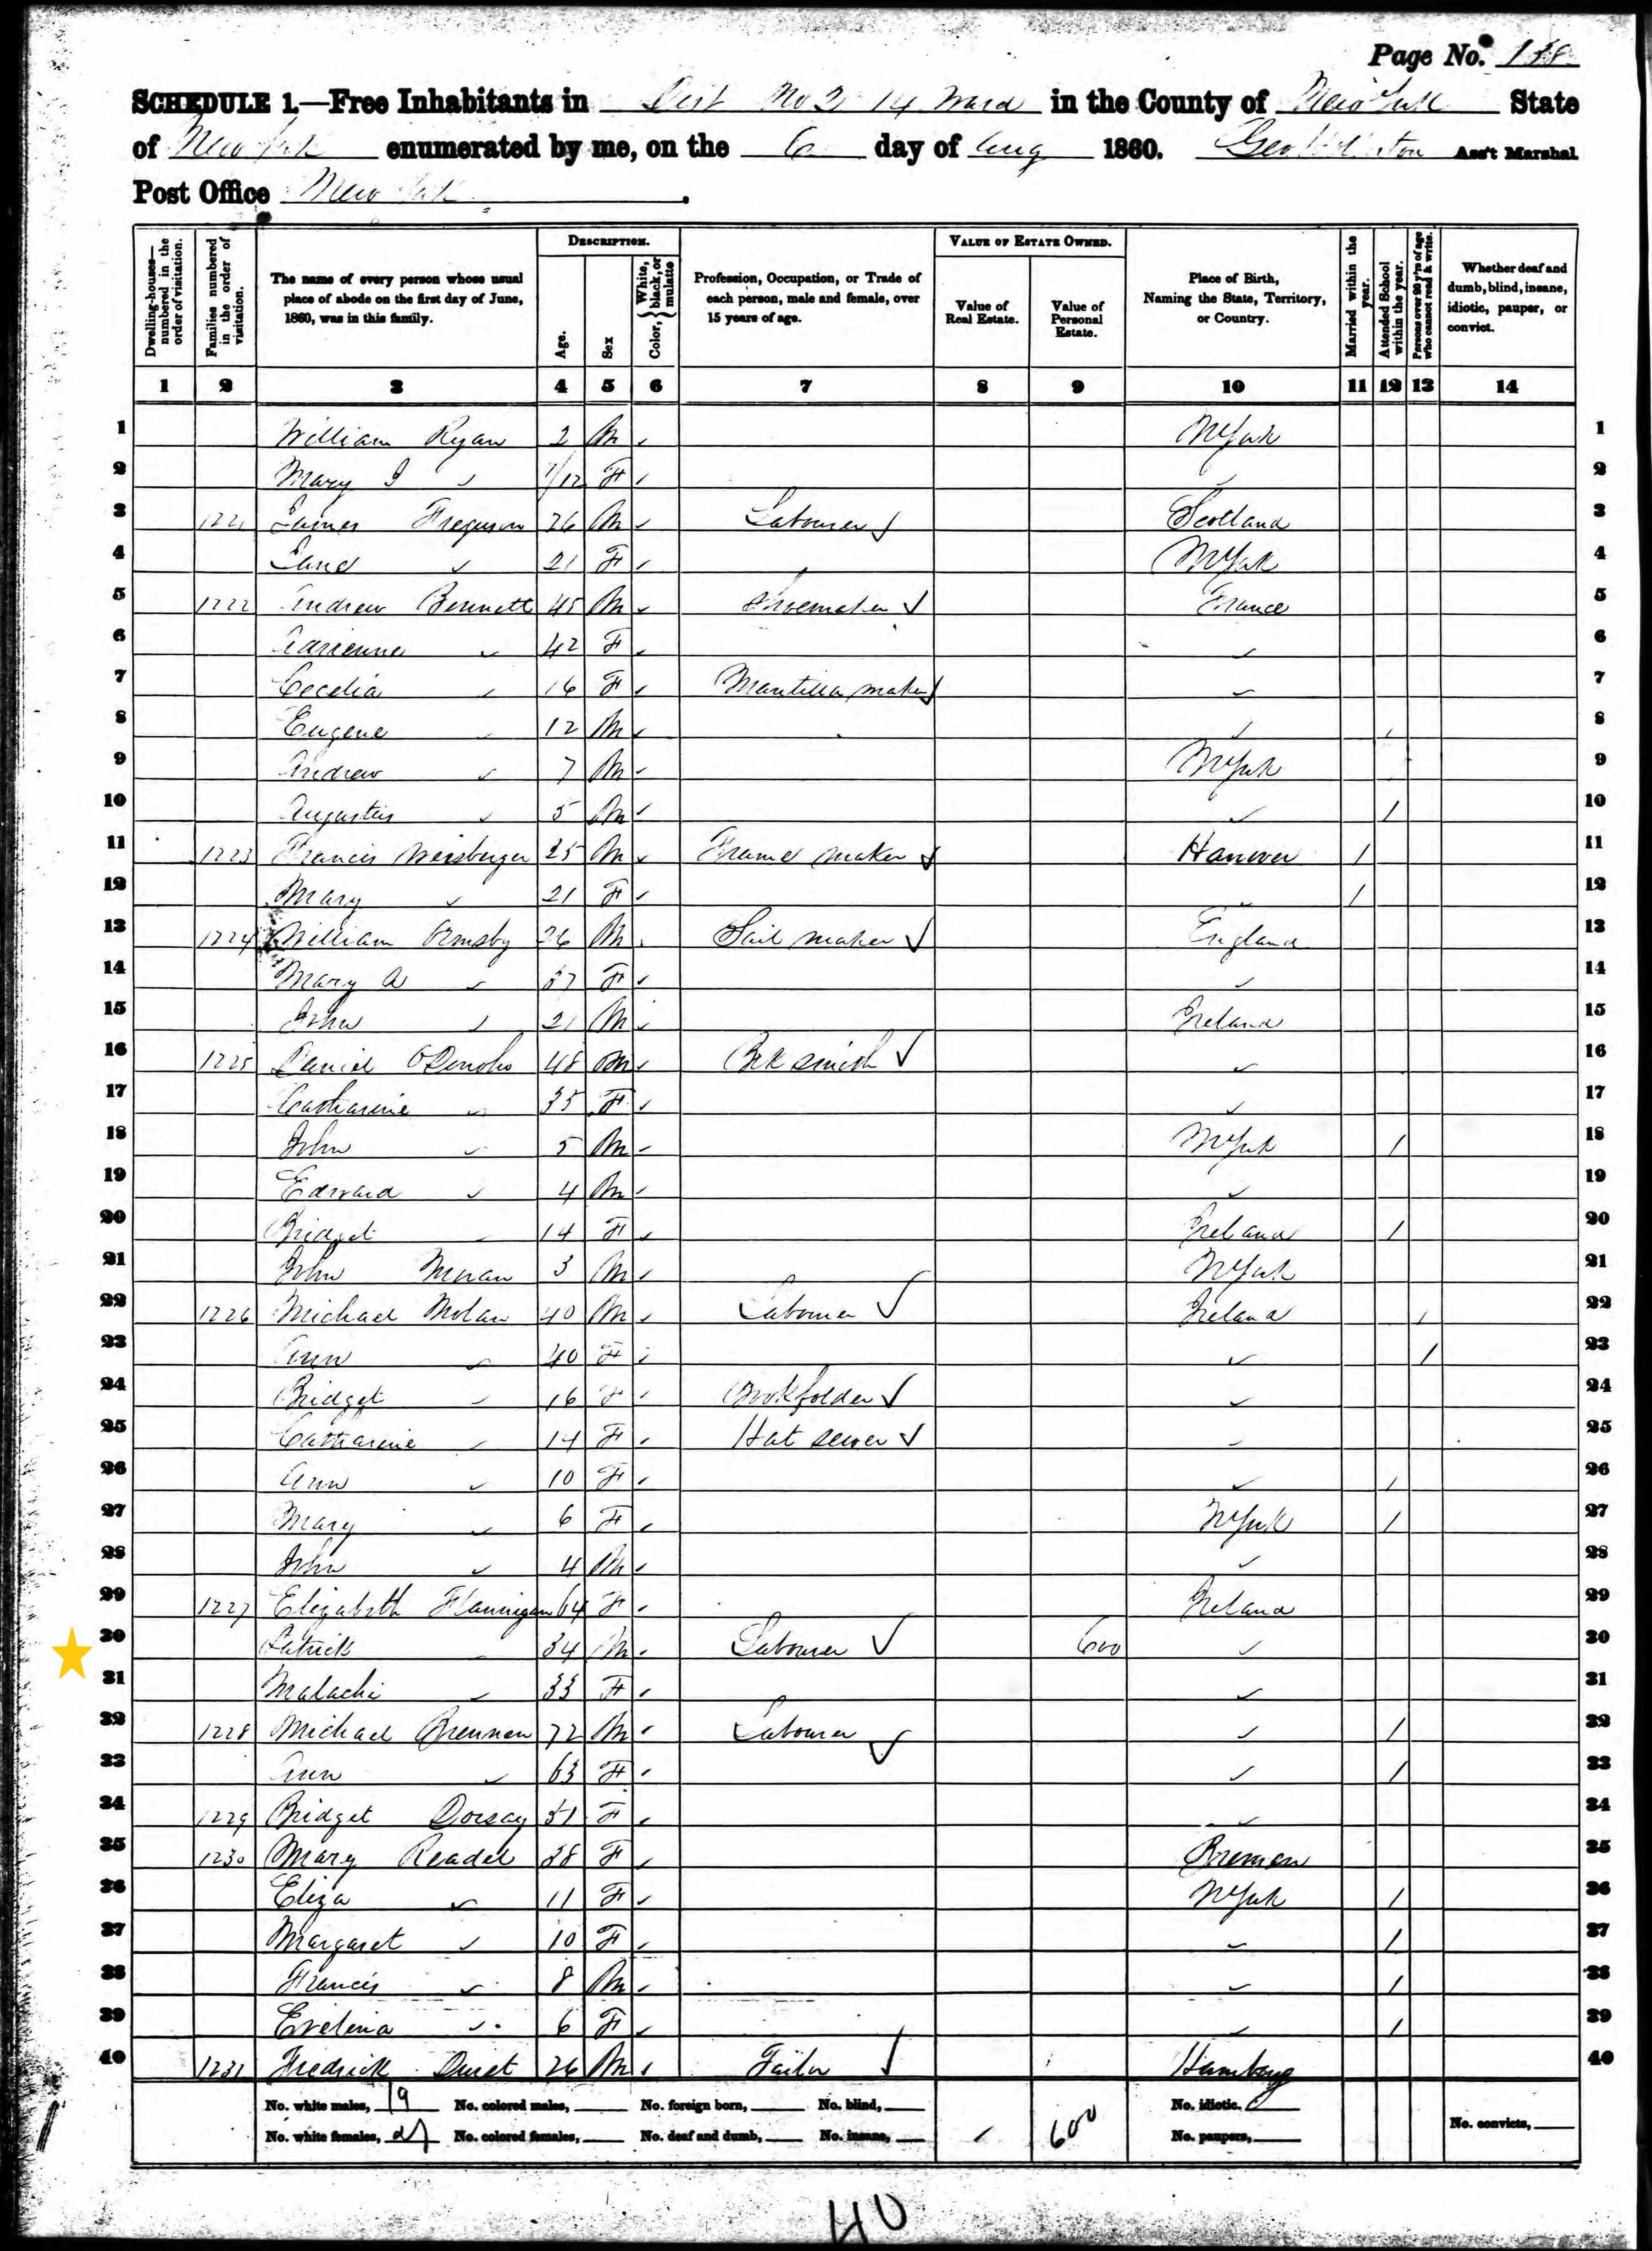 Page No. 138
SCHEDULE 1.—Free Inhabitants in Dist No 2 14 Ward in the County of New York State
of New York enumerated by me, on the 6 day of Aug 1860. Ass't Marshal
Post Office New York.
Dwelling-houses—numbered in the order of visitation.
Families numbered in the order of visitation.
The name of every person whose usual place of abode on the first day of June, 1860, was in this family.
DESCRIPTION.
Age.
Sex
Color, White, black, or mulatto
Profession, Occupation, or Trade of each person, male and female, over 15 years of age.
VALUE OF ESTATE OWNED.
Value of Real Estate.
Value of Personal Estate.
Place of Birth, Naming the State, Territory, or Country.
Married within the year.
Attended School within the year.
Persons over 20 y'rs of age who cannot read & write.
Whether deaf and dumb, blind, insane, idiotic, pauper, or convict.
1 2 3 4 5 6 7 8 9 10 11 12 13 14
1 William Ryan 2 M ✓ N York 1
2 Mary J ✓ /12 F ✓ ✓ 2
3 1221 James Freguson 26 M ✓ Labourer ✓ Scotland 3
4 Jane ✓ 21 F ✓ N York 4
5 1222 Andrew Bennett 45 M ✓ Shoemaker ✓ France 5
6 ✓ 42 F ✓ ✓ 6
7 Cecelia ✓ 16 F ✓ Mantilla maker ✓ ✓ 7
8 Eugene ✓ 12 M ✓ ✓ / 8
9 Andrew ✓ 7 M ✓ N York 9
10 Augustus ✓ 5 M ✓ ✓ / 10
11 1223 Francis Weisberger 25 M ✓ Frame maker ✓ Hanover / 11
12 Mary ✓ 21 F ✓ ✓ / 12
13 1224 William Ormsby 26 M ✓ Sail maker ✓ England 13
14 Mary A ✓ 37 F ✓ ✓ 14
15 John ✓ 21 M ✓ Ireland 15
16 1225 Daniel ODonoho 48 M ✓ Blk smith ✓ ✓ 16
17 Catharine ✓ 35 F ✓ ✓ 17
18 John ✓ 5 M ✓ N York / 18
19 Edward ✓ 4 M ✓ ✓ 19
20 Bridget ✓ 14 F ✓ Ireland / 20
21 John Moran 3 M ✓ N York 21
22 1226 Michael Molan 40 M ✓ Labourer ✓ Ireland / 22
23 Ann ✓ 40 F ✓ ✓ / 23
24 Bridget ✓ 16 F ✓ Book folder ✓ ✓ 24
25 Catharine ✓ 14 F ✓ Hat sewer ✓ ✓ 25
26 Ann ✓ 10 F ✓ ✓ / 26
27 Mary ✓ 6 F ✓ N York / 27
28 John ✓ 4 M ✓ ✓ 28
29 1227 Elizabeth Flannigan 64 F ✓ Ireland 29
30 Patrick ✓ 34 M ✓ Labourer ✓ 600 ✓ 30
31 Malachi ✓ 33 F ✓ ✓ 31
32 1228 Michael Brennen 72 M ✓ Labourer ✓ ✓ / 32
33 Ann ✓ 63 F ✓ ✓ / 33
34 1229 Bridget Dorsay 51 F ✓ ✓ 34
35 1230 Mary Readel 38 F ✓ Bremen 35
36 Eliza ✓ 11 F ✓ N York / 36
37 Margaret ✓ 10 F ✓ ✓ / 37
38 Francis ✓ 8 M ✓ ✓ / 38
39 Evelina ✓ 6 F ✓ ✓ / 39
40 1231 Fredrick 26 M ✓ Tailor ✓ Hamburg 40
No. white males, 19 No. colored males, No. foreign born, No. blind, No. idiotic,
No. white females, 21 No. colored females, No. deaf and dumb, No. insane, 600 No. paupers, No. convicts,
40